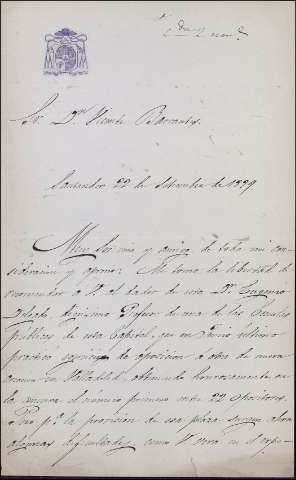 Sr. Dn. Vicente Barrantes.
Santander 22 de Setiembre de 1879
Muy Sr. mio y amigo de toda mi con-
sideracion y aprecio: Me tomo la libertad de
recomendar a V. al dador de esta Dn. Eugenio
dignisimo Profesor de una de las Escuelas
publicas de esta Capital, que en Junio último
practicó ejercicios de oposicion a otra de nueva
en Valladolid, obteniendo honrosamente en
la censura el número primero entre 22 opositores.
Pero pa. la provision de esa plaza surgen ahora
algunas dificultades, como V. verá en el espe-